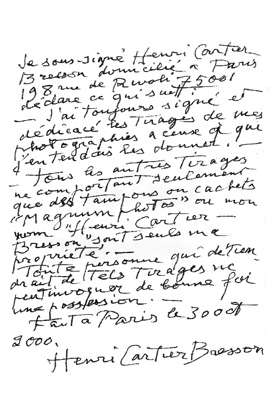 Je sous-signé Henri Cartier-
Bresson domicilié à Paris
198 rue de Rivoli 75001
déclare ce qui suit :
— J'ai toujours signé et
dédicacé les tirages de mes
photographies à ceux à que
j'entendais les donner. —
— Tous les autres tirages
ne comportant seulement
que des tampons ou cachets
"Magnum Photos" ou mon
nom "Henri Cartier-
Bresson" sont seuls ma
propriété. —
Toute personne qui détien
drait de tels tirages ne
peut invoquer de bonne foi
une possession. —
Fait à Paris le 30 oct
2000.
Henri Cartier Bresson